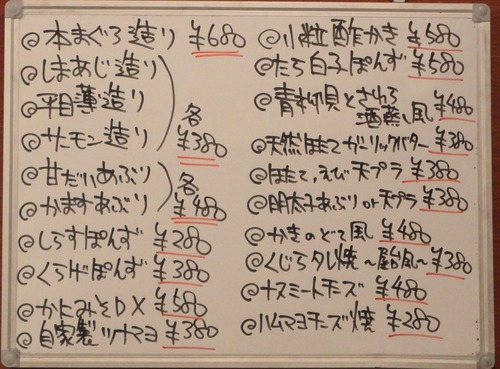 ◎本まぐろ造り ¥680
◎しまあじ造り
◎平目薄造り
◎サーモン造り
各
¥380
◎甘だいあぶり
◎かますあぶり
各
¥480
◎しらすぽんず ¥280
◎くらげぽんず ¥380
◎かにみそDX ¥580
◎自家製ツナマヨ ¥380
◎小粒酢かき ¥580
◎たら白子ぽんず ¥580
◎青柳貝とさわら
酒蒸し風 ¥480
◎天然ほたてガーリックバター ¥380
◎ほたて、えび天プラ ¥380
◎明太子あぶりor天プラ ¥380
◎かきのどて風 ¥480
◎くじらタレ焼~屋台風~ ¥380
◎ナスミートチーズ ¥480
◎ハムマヨチーズ焼 ¥280